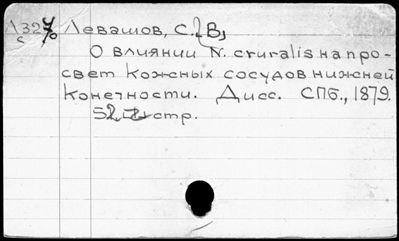 Левашов, С. В.
О влиянии N. cruralis на про-
свет кожных сосудов нижней
конечности. Дисс. СПб., 1879.
52 стр.